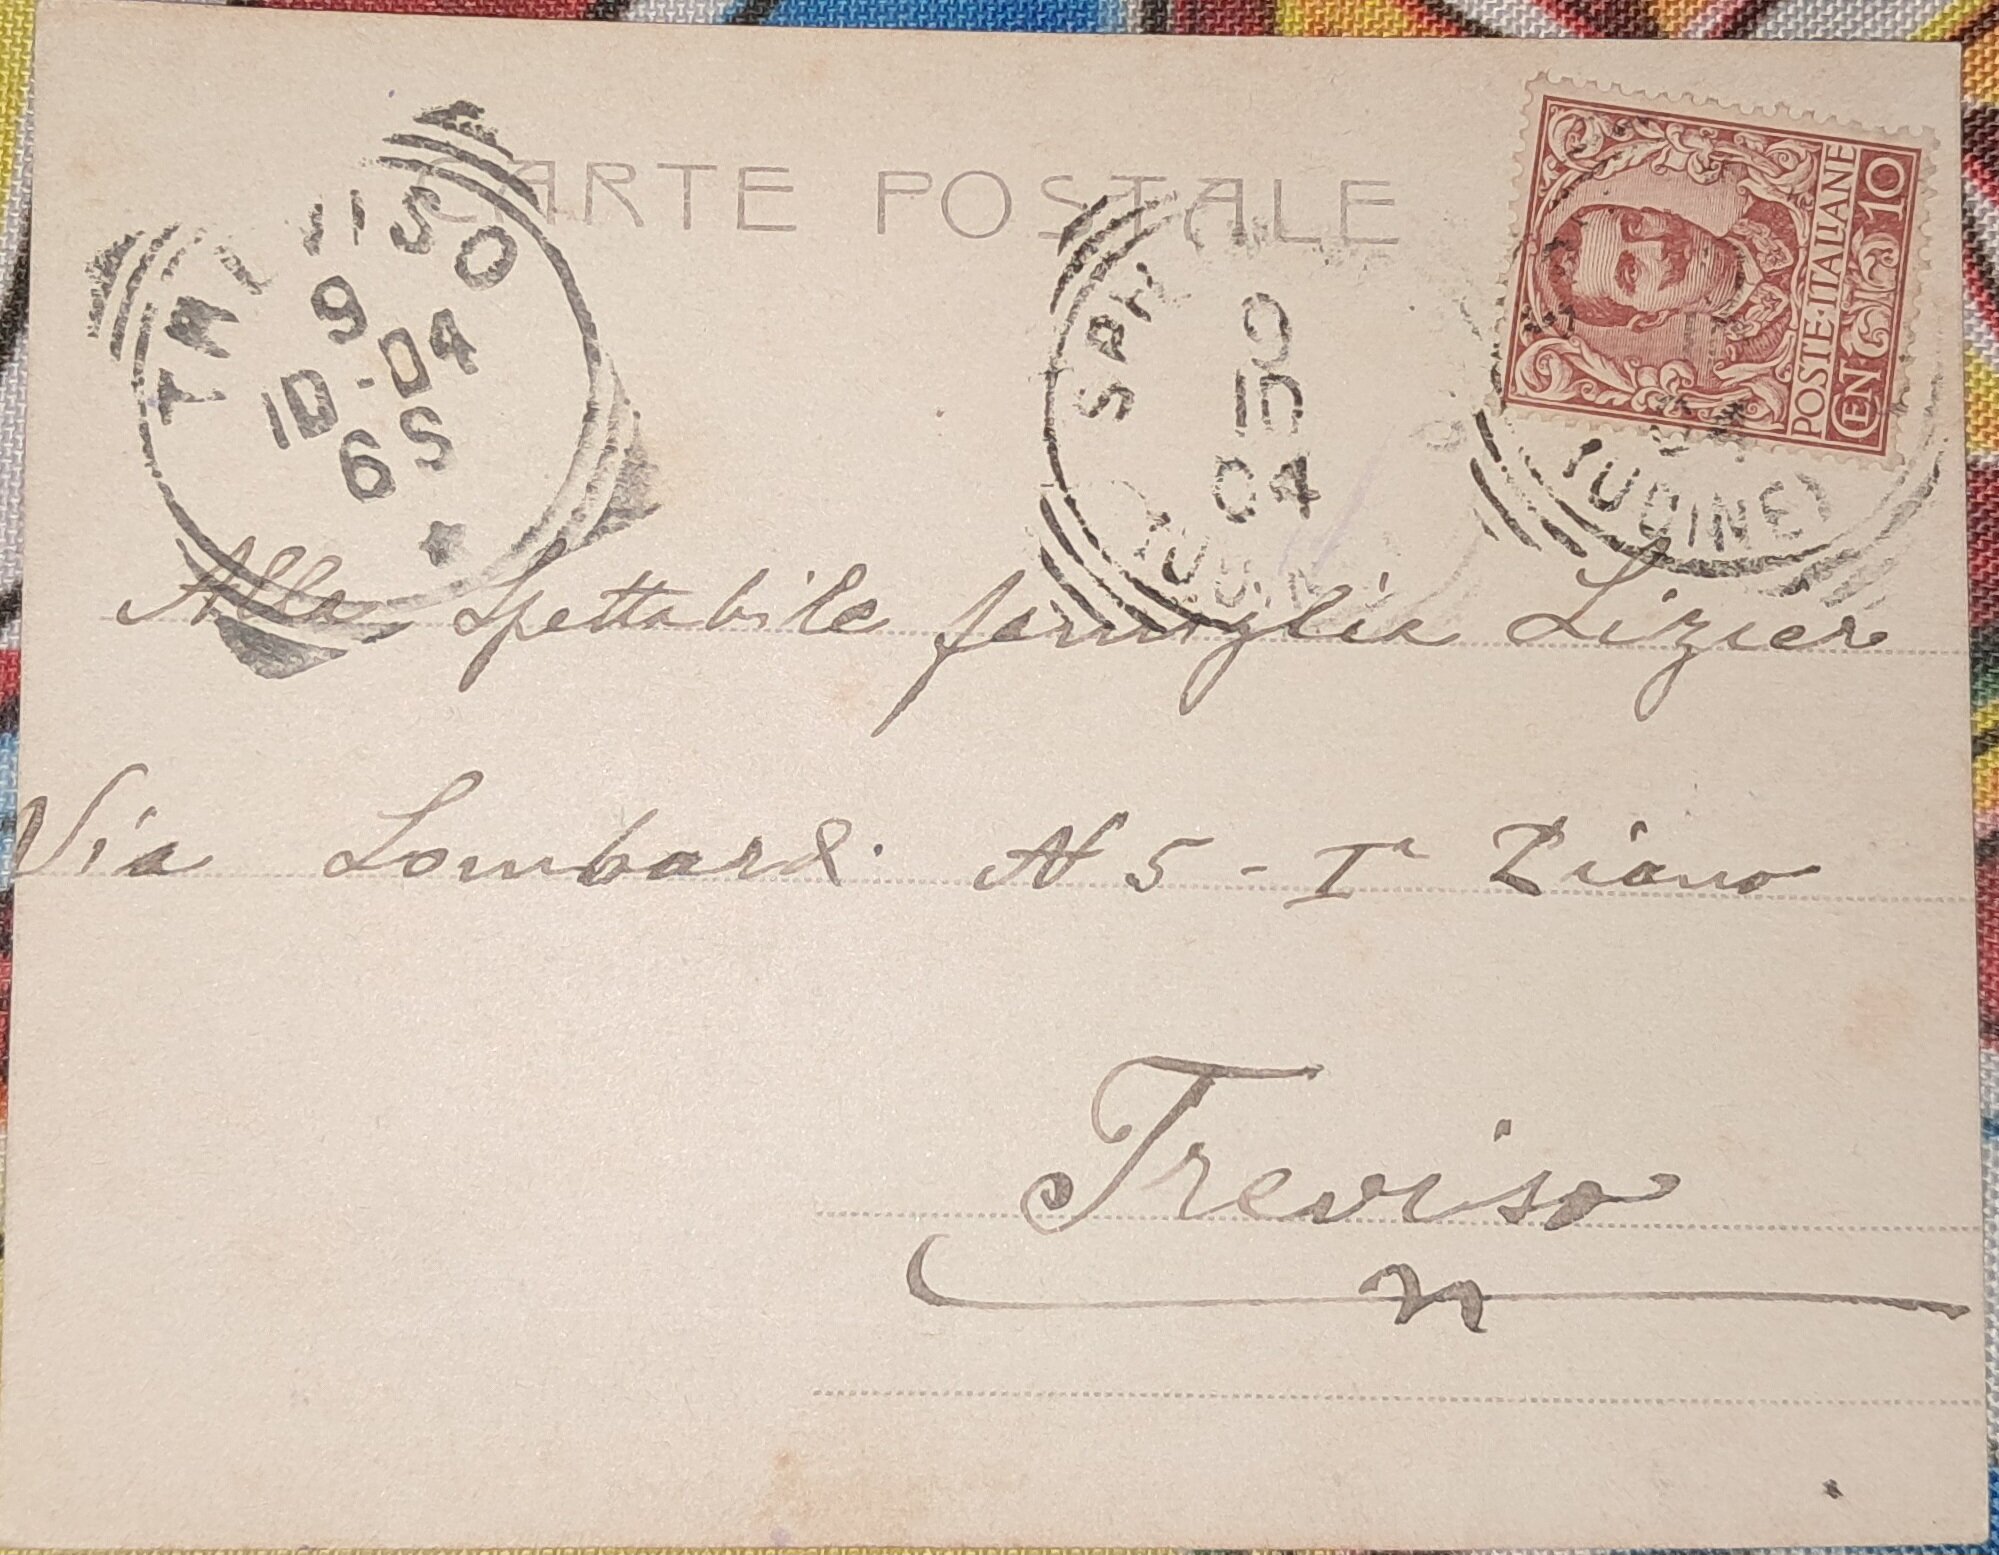 CARTE POSTALE
TREVISO
9
10-04
6S
9
10
04
(UDINE)
POSTE·ITALIANE
CEN 10
Alla Spettabile famiglia Lizier
Via Lombardi N 5 - Iº Piano
Treviso